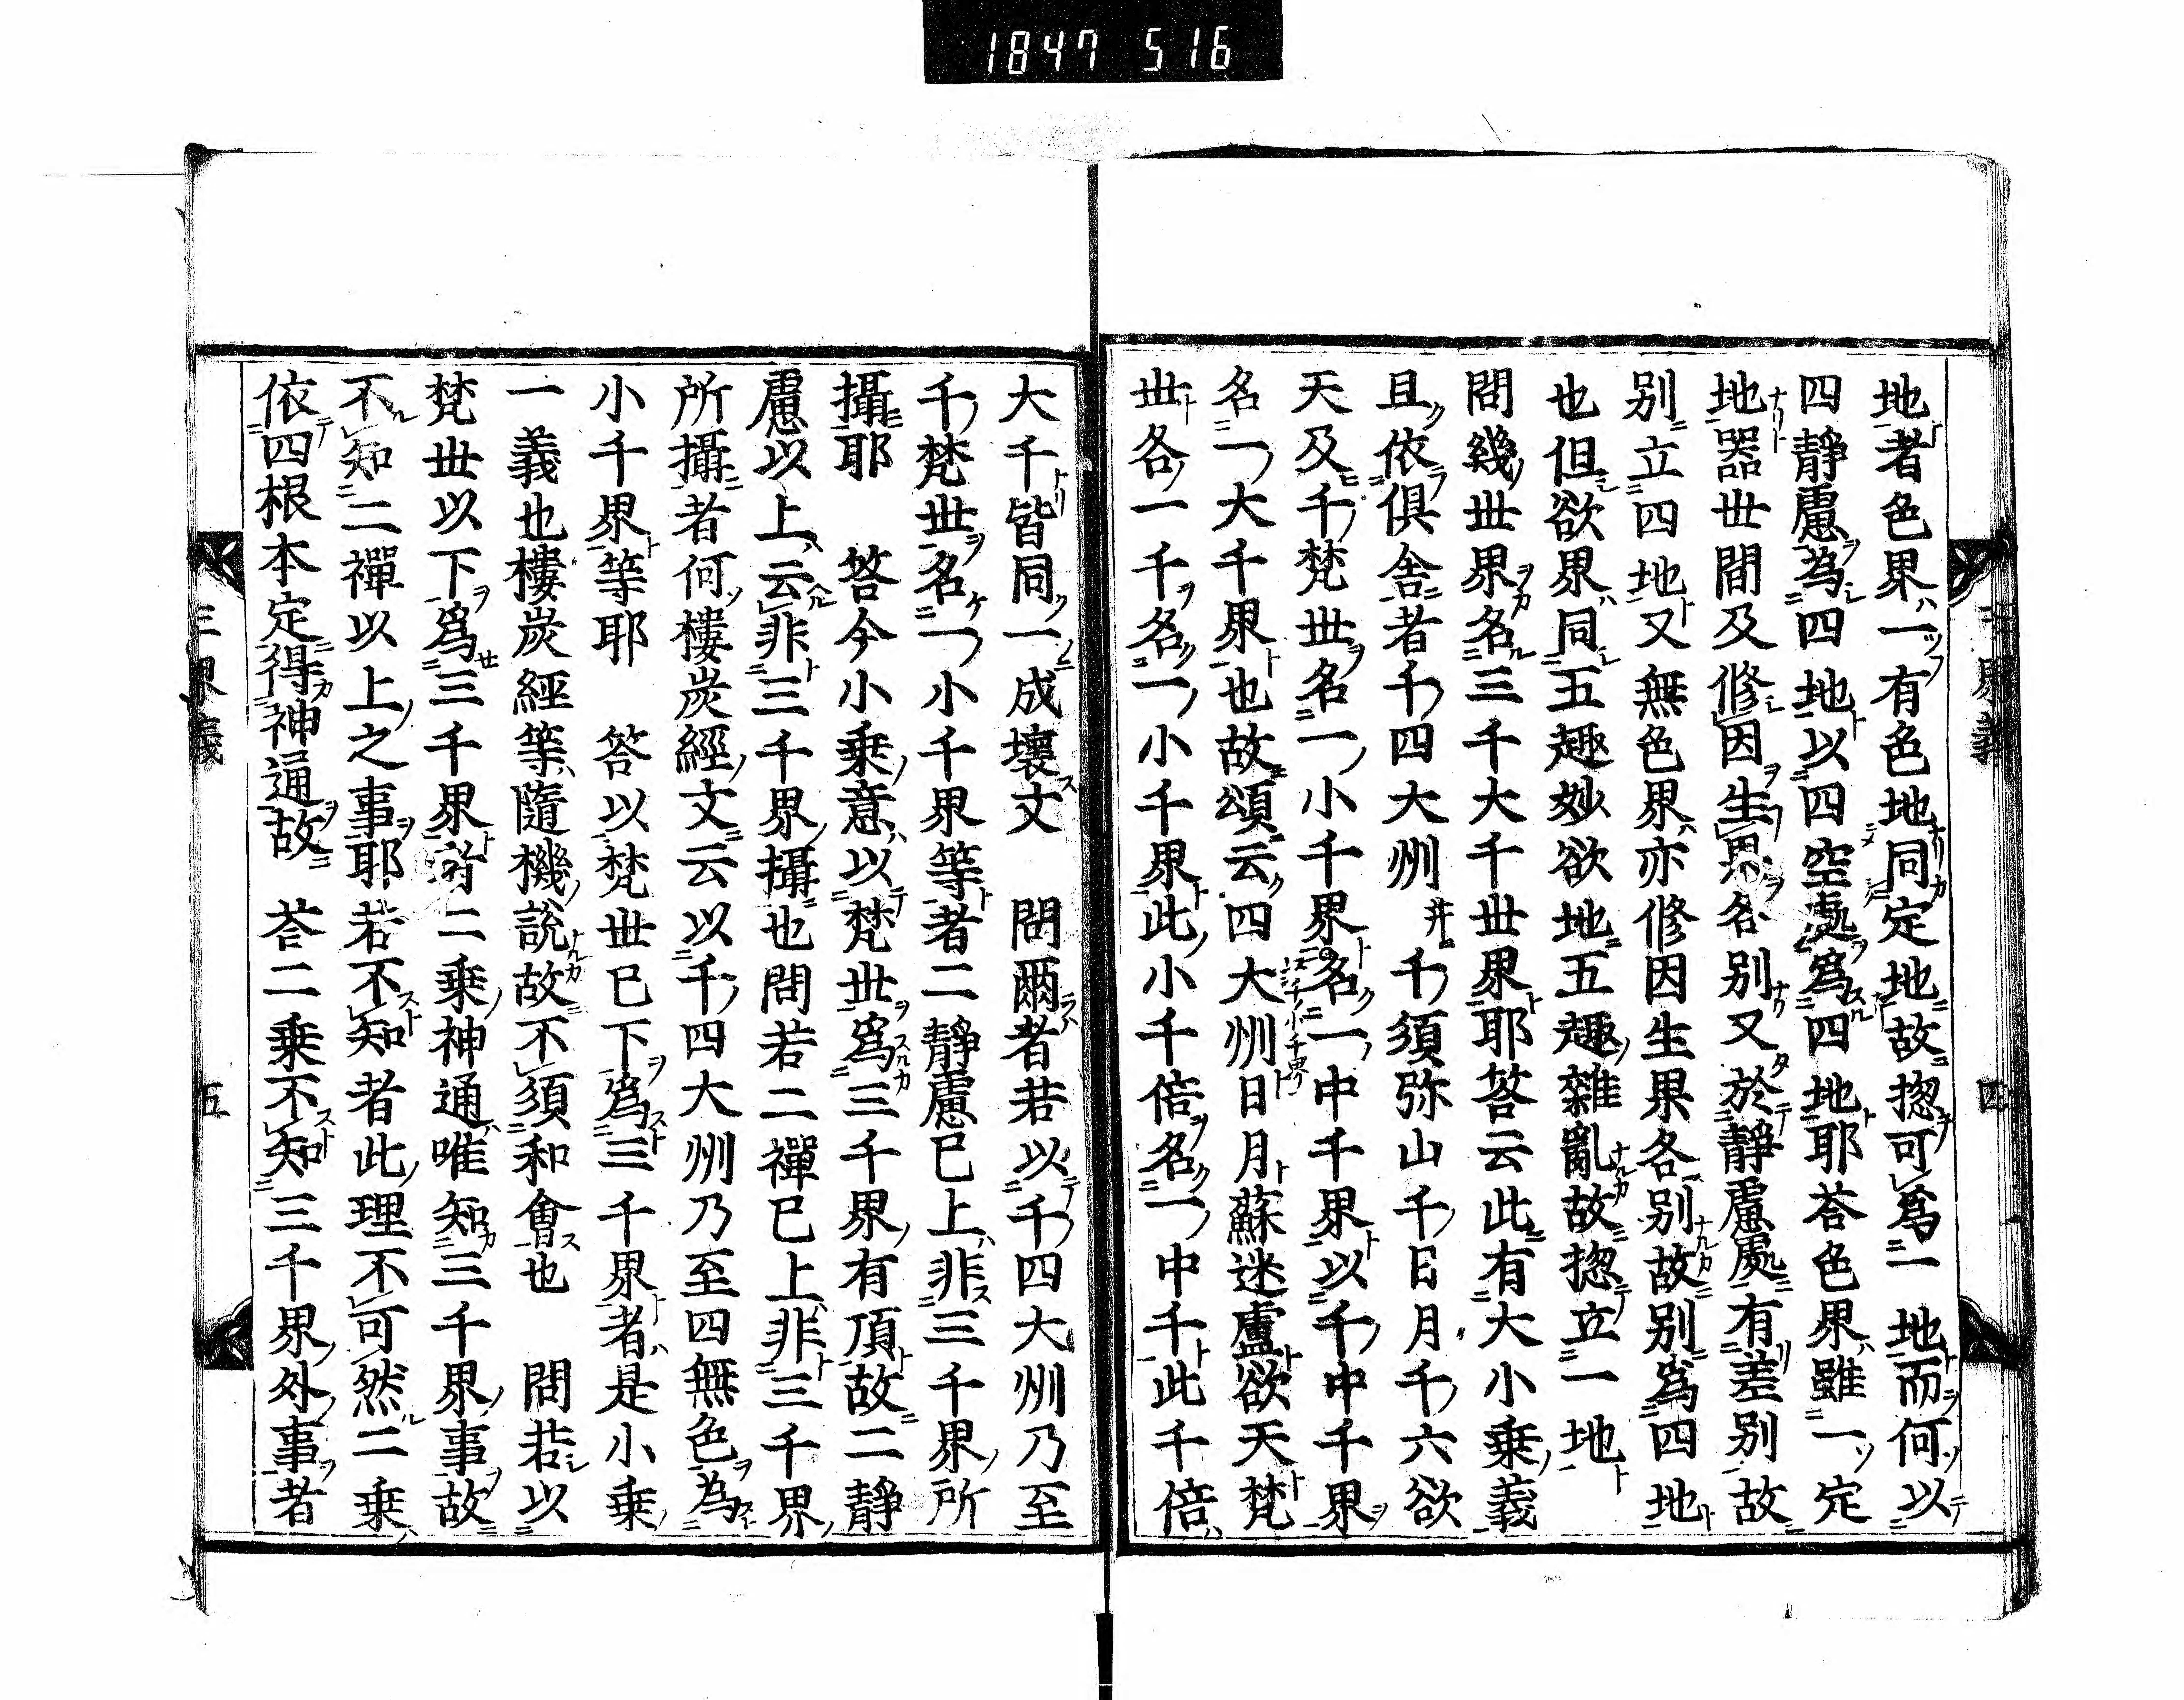 1847 516
地者色界一有色地同定地故惣可為一地而何以
四靜慮為四地以四空處為四地耶荅色界雖一定
地器世間及修因生果各別又於靜慮處有差別故
別立四地又無色界亦修因生果各別故別為四地
也但欲界同五趣妙欲地五趣雜亂故惣立一地
問幾世界名三千大千世界耶答云此有大小乗義
且依俱舎者千四大州并千須弥山千日月千六欲
天及千梵世名一小千界名一中千界以千中千界
名一大千界也故頌云四大州日月蘇迷盧欲天梵
世各一千名一小千界此小千倍名一中千此千倍
大千皆同一成壞文 問爾者若以千四大州乃至
千梵世名一小千界等者二靜慮已上非三千界所
攝耶 答今小乗意以梵世為三千界有頂故二靜
慮以上云非三千界攝也問若二禪已上非三千界
所攝者何樓炭經文云以千四大州乃至四無色為
小千界等耶 答以梵世已下為三千界者是小乗
一義也樓炭經等隨機說故不須和會也 問若以
梵世以下為三千界者二乗神通唯知三千界事故
不知二禪以上之事耶若不知者此理不可然二乗
依四根本定得神通故 荅二乗不知三千界外事者
三界義 四
三界義 五